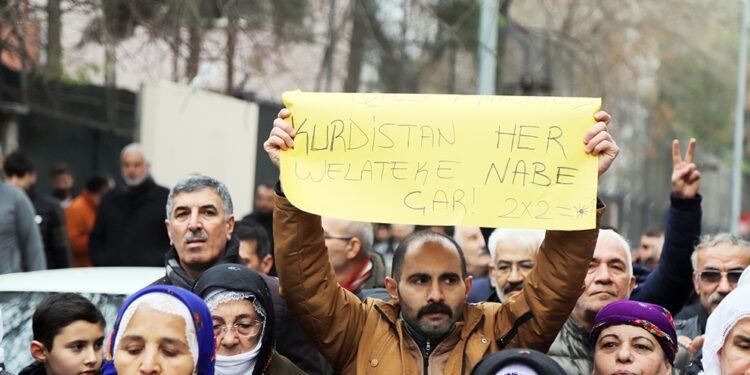 KURDISTAN HER
WELATEKE NABE
ÇAR! 2x2=*